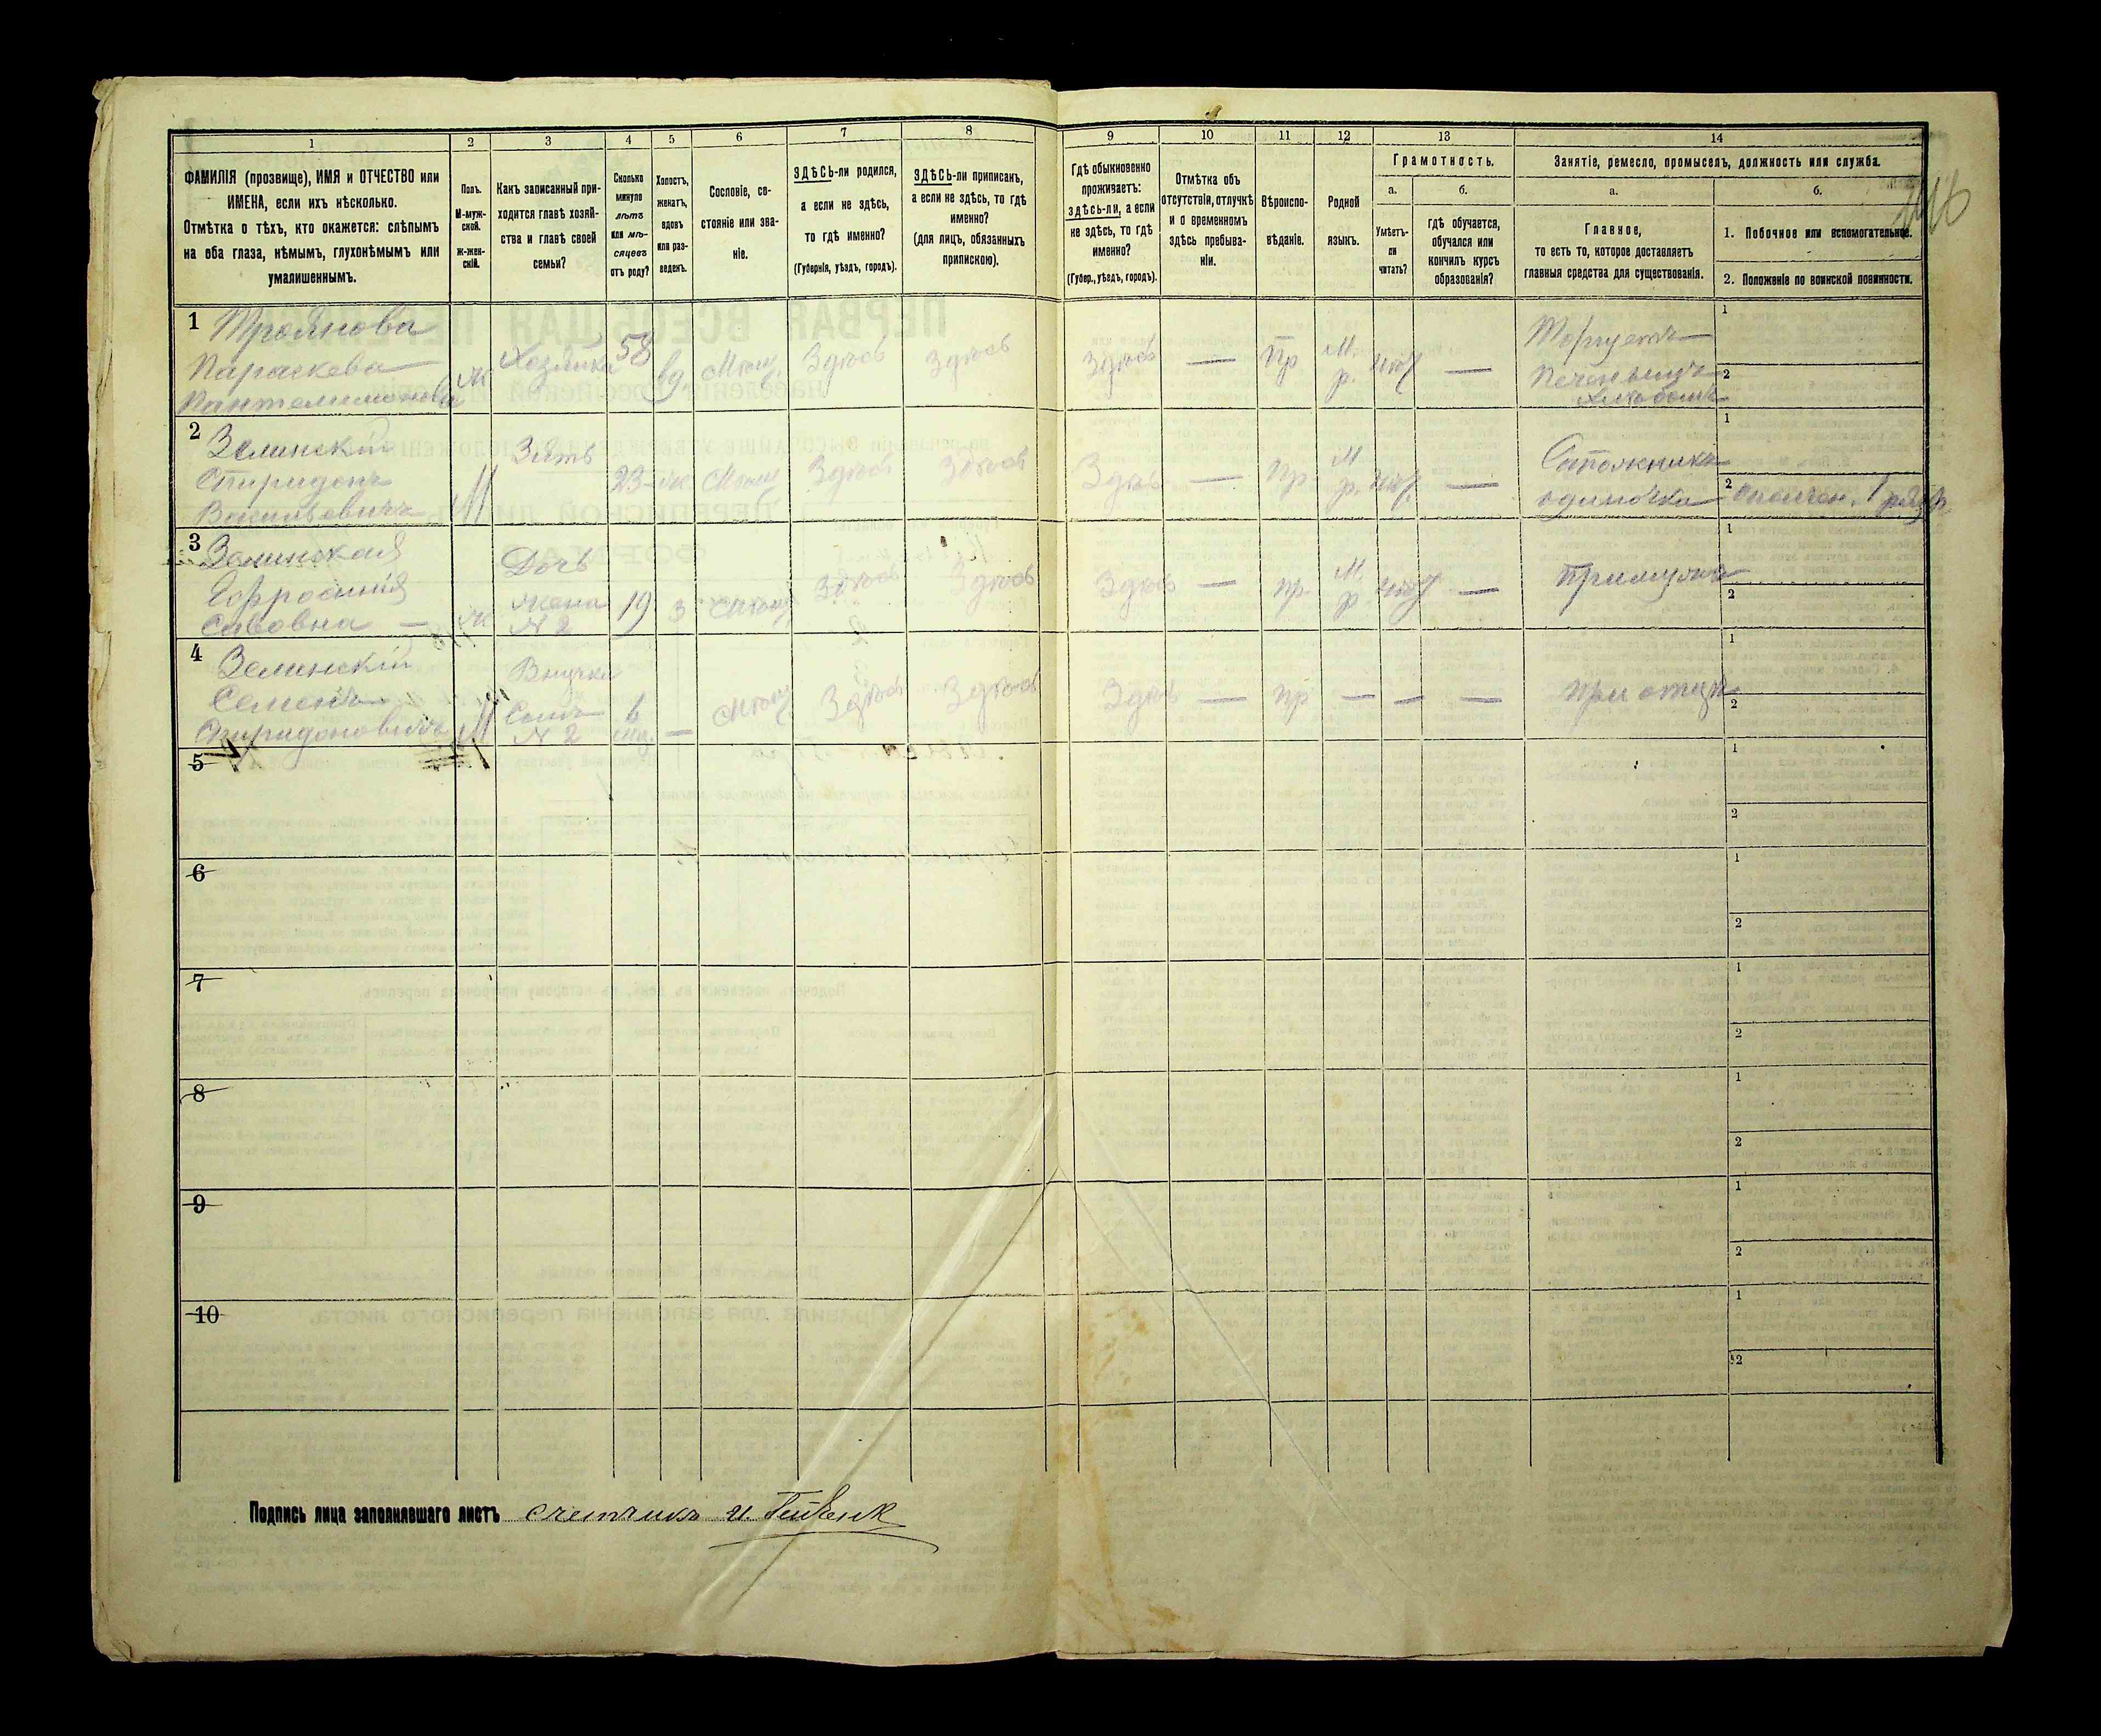 1
2
3
4
5
6
7
8
ФАМИЛІЯ (прозвище), ИМЯ и ОТЧЕСТВО или
ИМЕНА, если ихъ нѣсколько.
Отмѣтка о тѣхъ, кто окажется: слѣпымъ
на оба глаза, нѣмымъ, глухонѣмымъ или
умалишеннымъ.
Полъ.
М-муж-
ской.
Ж-жен-
скій.
Какъ записанный при-
ходится главѣ хозяй-
ства и главѣ своей
семьи?
Сколько
минуло
лѣтъ
или мѣ-
сяцевъ
отъ роду?
Холостъ,
женатъ,
вдовъ
или раз-
веденъ.
Сословіе, со-
стояніе или зва-
ніе.
ЗДѢСЬ-ли родился,
а если не здѣсь,
то гдѣ именно?
(Губернія, уѣздъ, городъ).
ЗДѢСЬ-ли приписанъ,
а если не здѣсь, то гдѣ
именно?
(для лицъ, обязанныхъ
припискою).
9
10
11
12
13
14
Гдѣ обыкновенно
проживаетъ:
здѣсь-ли, а если
не здѣсь, то гдѣ
именно?
(Губер., уѣздъ, городъ).
Отмѣтка объ
отсутствіи, отлучкѣ
и о временномъ
здѣсь пребыва-
ніи.
Вѣроиспо-
вѣданіе.
Родной
языкъ.
Грамотность.
а.
б.
Умѣетъ-
ли
читать?
гдѣ обучается,
обучался или
кончилъ курсъ
образованія?
Занятіе, ремесло, промыселъ, должность или служба.
а.
б.
Главное,
то есть то, которое доставляетъ
главныя средства для существованія.
1. Побочное или вспомогательное.
2. Положеніе по воинской повинности.
1 Троянова
Параскева
Пантелимонова
Ж
Хозяйка
58
вд
Мѣщ.
Здѣсь
Здѣсь
Здѣсь
—
Пр
М.
р.
нѣт
—
Торгуетъ
печенымъ
хлѣбомъ
1
2
2 Зелинскій
Спиридонъ
Васильевичъ
М
Зять
23
ж
Мѣщ
Здѣсь
Здѣсь
Здѣсь
—
Пр
М
р.
нѣт
—
Сапожникъ
одиночка
1
2 Ополчен. 1 разр
3 Зелинская
Ефросинія
Савовна
Ж
Дочь
жена
N 2
19
з
Мѣщ
Здѣсь
Здѣсь
Здѣсь
—
пр.
М.
р
нѣт
—
При мужѣ
1
2
4 Зелинскій
Семенъ
Спиридоновичъ
М
Внукъ
Сынъ
N 2
6
мц.
—
Мѣщ
Здѣсь
Здѣсь
Здѣсь
—
пр
—
—
—
При отцѣ
1
2
5
1
2
6
1
2
7
1
2
8
1
2
9
1
2
10
1
2
Подпись лица заполнявшаго листъ счетчикъ И.